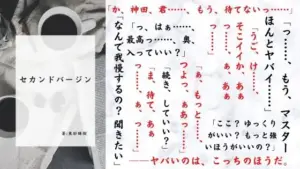 セカンドバージン
「か、神田、君……、もう、待てないっ……」
「っ……、もう、マスター
ほんとヤバイ……」
「うご、け、……、
そこイイか、あぁ
っ……、ぁ、あぁ
「っ、はぁ……、
最高っ……、奥、
入っていい？」
「ここ？ ゆっくり
がいい？ もっと強
いほうがいいの？」
「ぁ、もっと……、
つよっ、ぁあっ……
「続き、していい？」
「ま、待て、ぁぁ
「なんで我慢するの？ 聞きたい」
――ヤバいのは、こっちのほうだ。